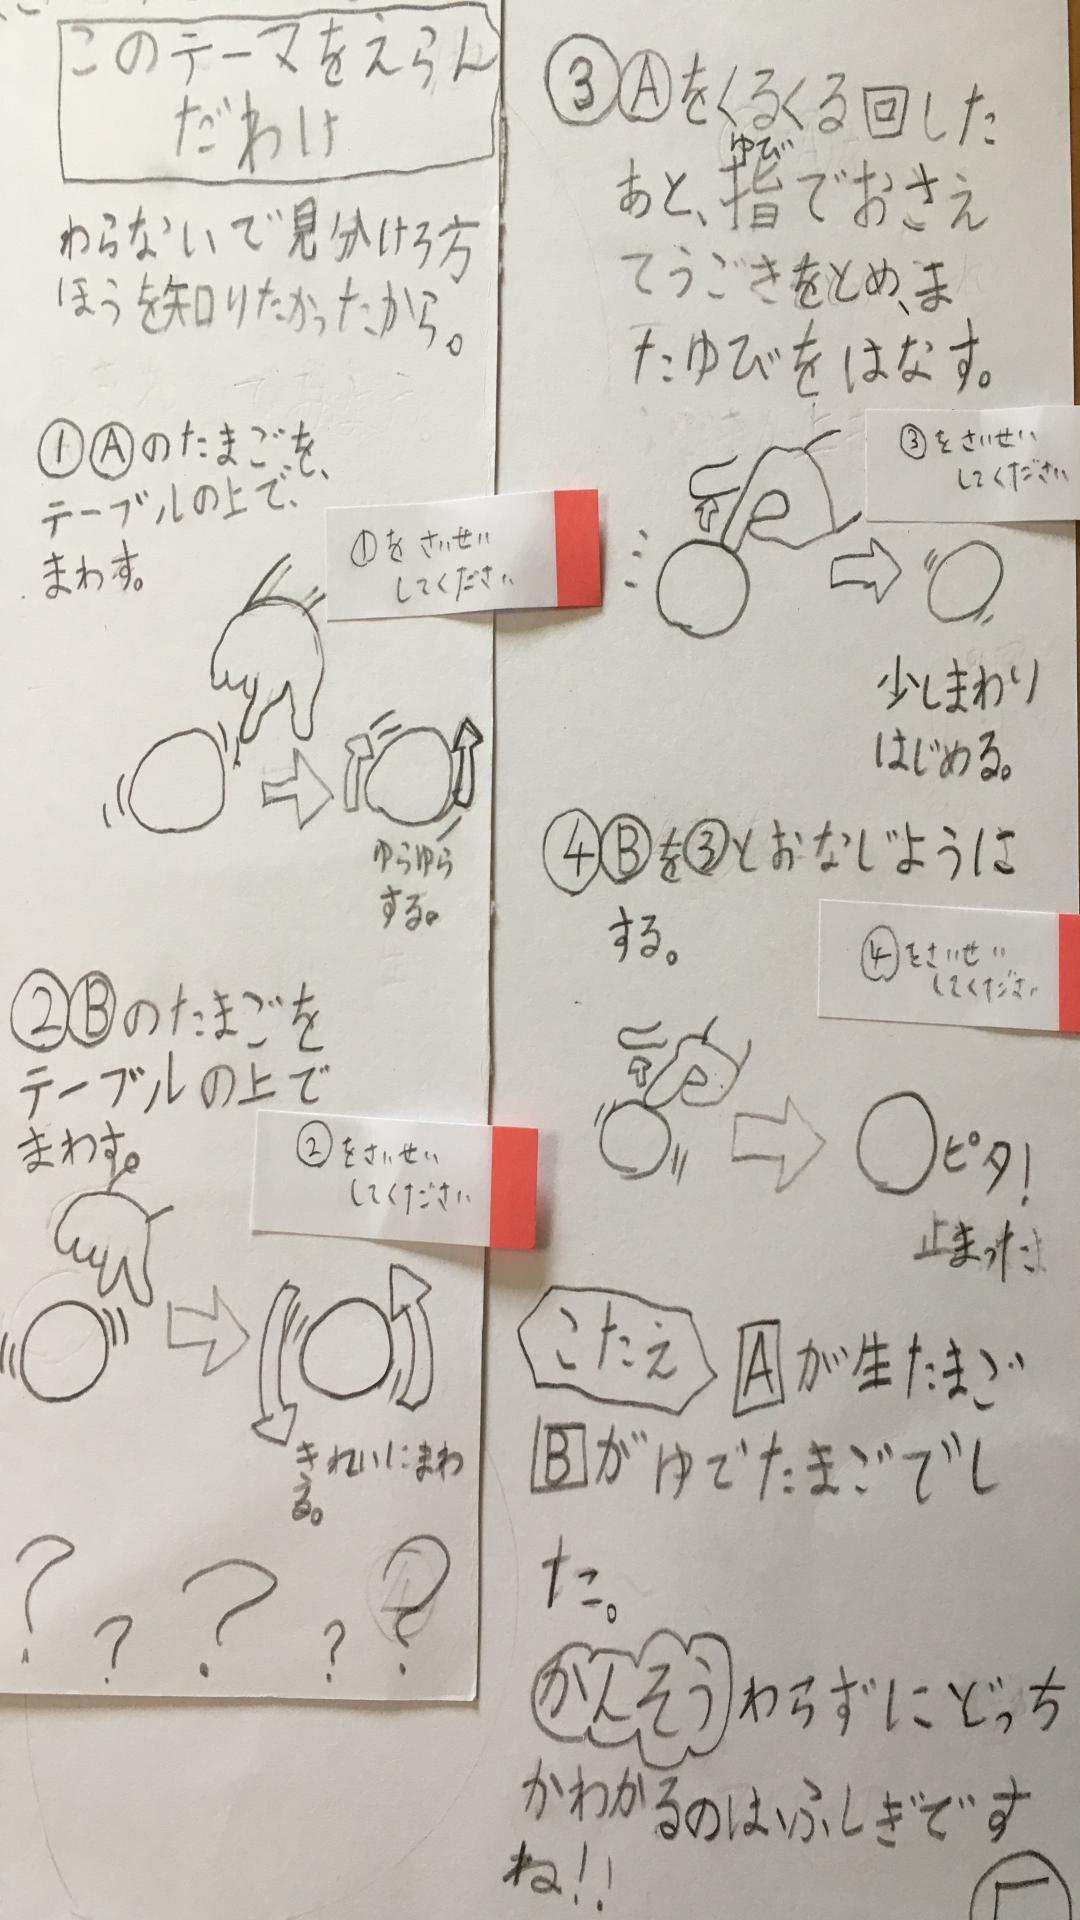 このテーマをえらん
だわけ
わらないで見分ける方
ほうを知りたかったから。
①Ⓐのたまごを、
テーブルの上で、
まわす。
①をさいせい
してください
ゆらゆら
する。
②Ⓑのたまごを
テーブルの上で
まわす。
②をさいせい
してください
きれいにまわ
る。
? ? ? ? ?
③Ⓐをくるくる回した
ゆび
あと、指でおさえ
てうごきをとめ、ま
たゆびをはなす。
③をさいせい
してください
少しまわり
はじめる。
④Ⓑを③とおなじように
する。
④をさいせい
してください
ピタ!
止まった
こたえ Aが生たまご
Bがゆでたまごでし
た。
かんそう わらずにどっち
かわかるのはふしぎです
ね!!